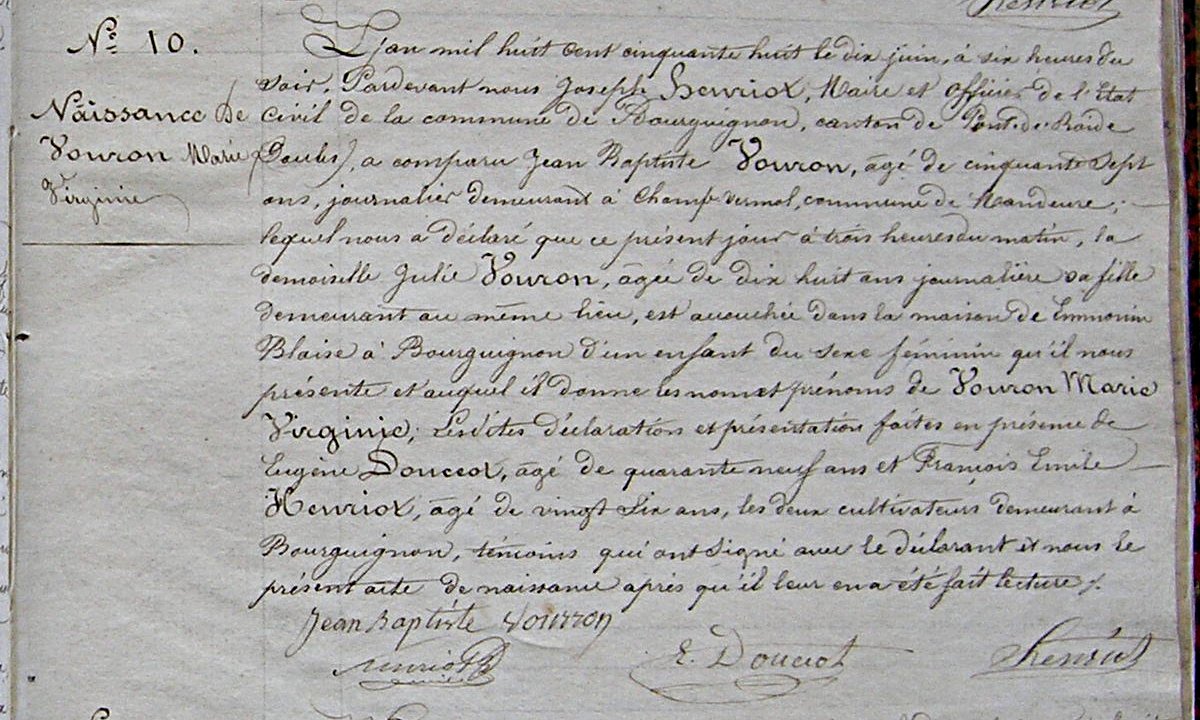 Henriot
N° 10.
Naissance De
Vouron Marie
Virginie
L'an mil huit cent cinquante huit le dix juin, à six heures du
soir. Pardevant nous Joseph Henriot, Maire et Officier de l'Etat
Civil de la commune de Bourguignon, canton de Pont-de-Roide
(Doubs), a comparu Jean Baptiste Vouron, âgé de cinquante sept
ans, journalier demeurant à Champ-vermol, commune de Mandeure;
lequel nous a déclaré que ce présent jour à trois heures du matin, la
demoiselle Julie Vouron, âgée de dix huit ans journalière sa fille
demeurant au même lieu, est accouchée dans la maison de Emmonin
Blaise à Bourguignon d'un enfant du sexe féminin qu'il nous
présente et auquel il donne les nom et prénoms de Vouron Marie
Virginie; Lesdites déclaration et présentation faites en présence de
Eugène Douceot, âgé de quarante neuf ans et François Emile
Henriot, âgé de vingt six ans, les deux cultivateurs demeurant à
Bourguignon, témoins qui ont signé avec le déclarant et nous le
présent acte de naissance après qu'il leur en a été fait lecture ;.
Jean Baptiste Vourron
Henriot E. Douceot Henriot